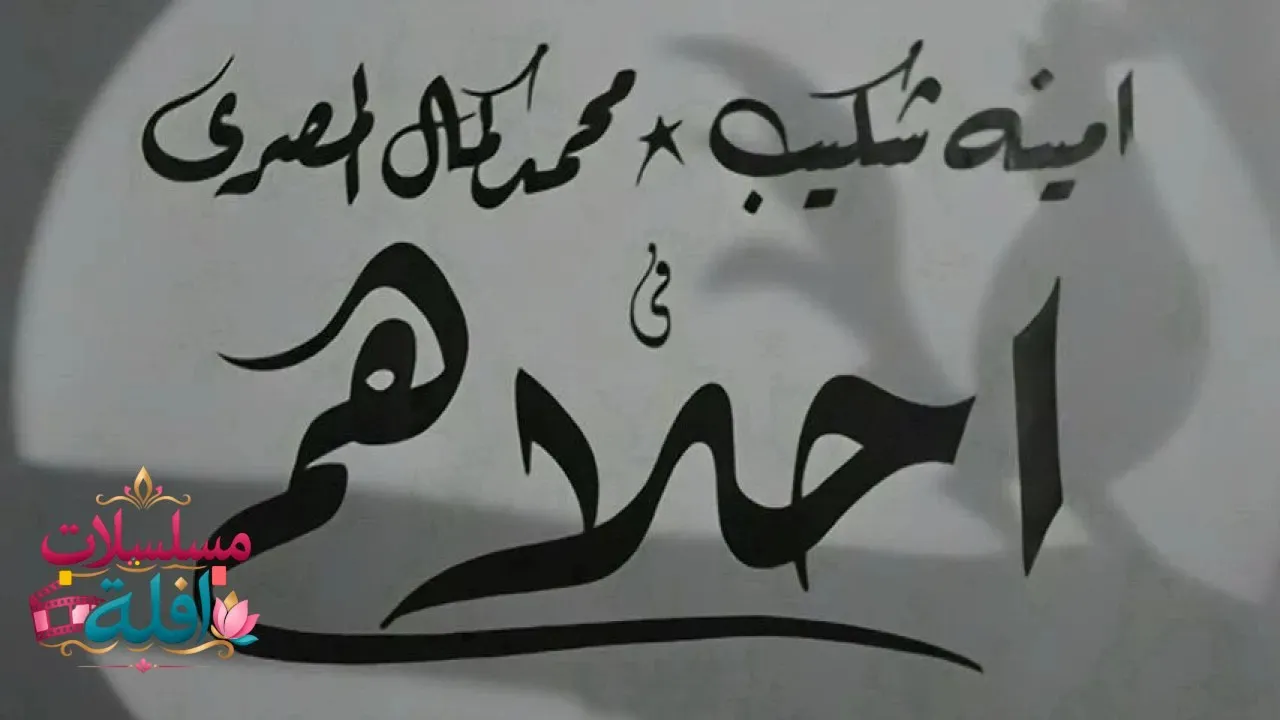 امينه شكيب ★ محمد كمال المصرى
فى
احلاهم
مسلسلات
افلة